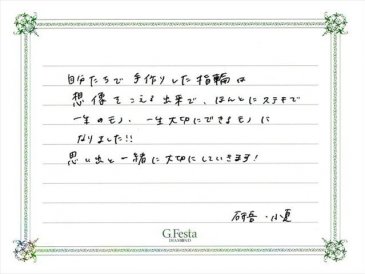 自分たちで手作りした指輪は
想像をこえる出来で、ほんとにステキで
一生のモノ、一生大切にできるモノに
なりました!!
思い出と一緒に大切にしていきます!
研吾・小夏
G.Festa
DIAMOND